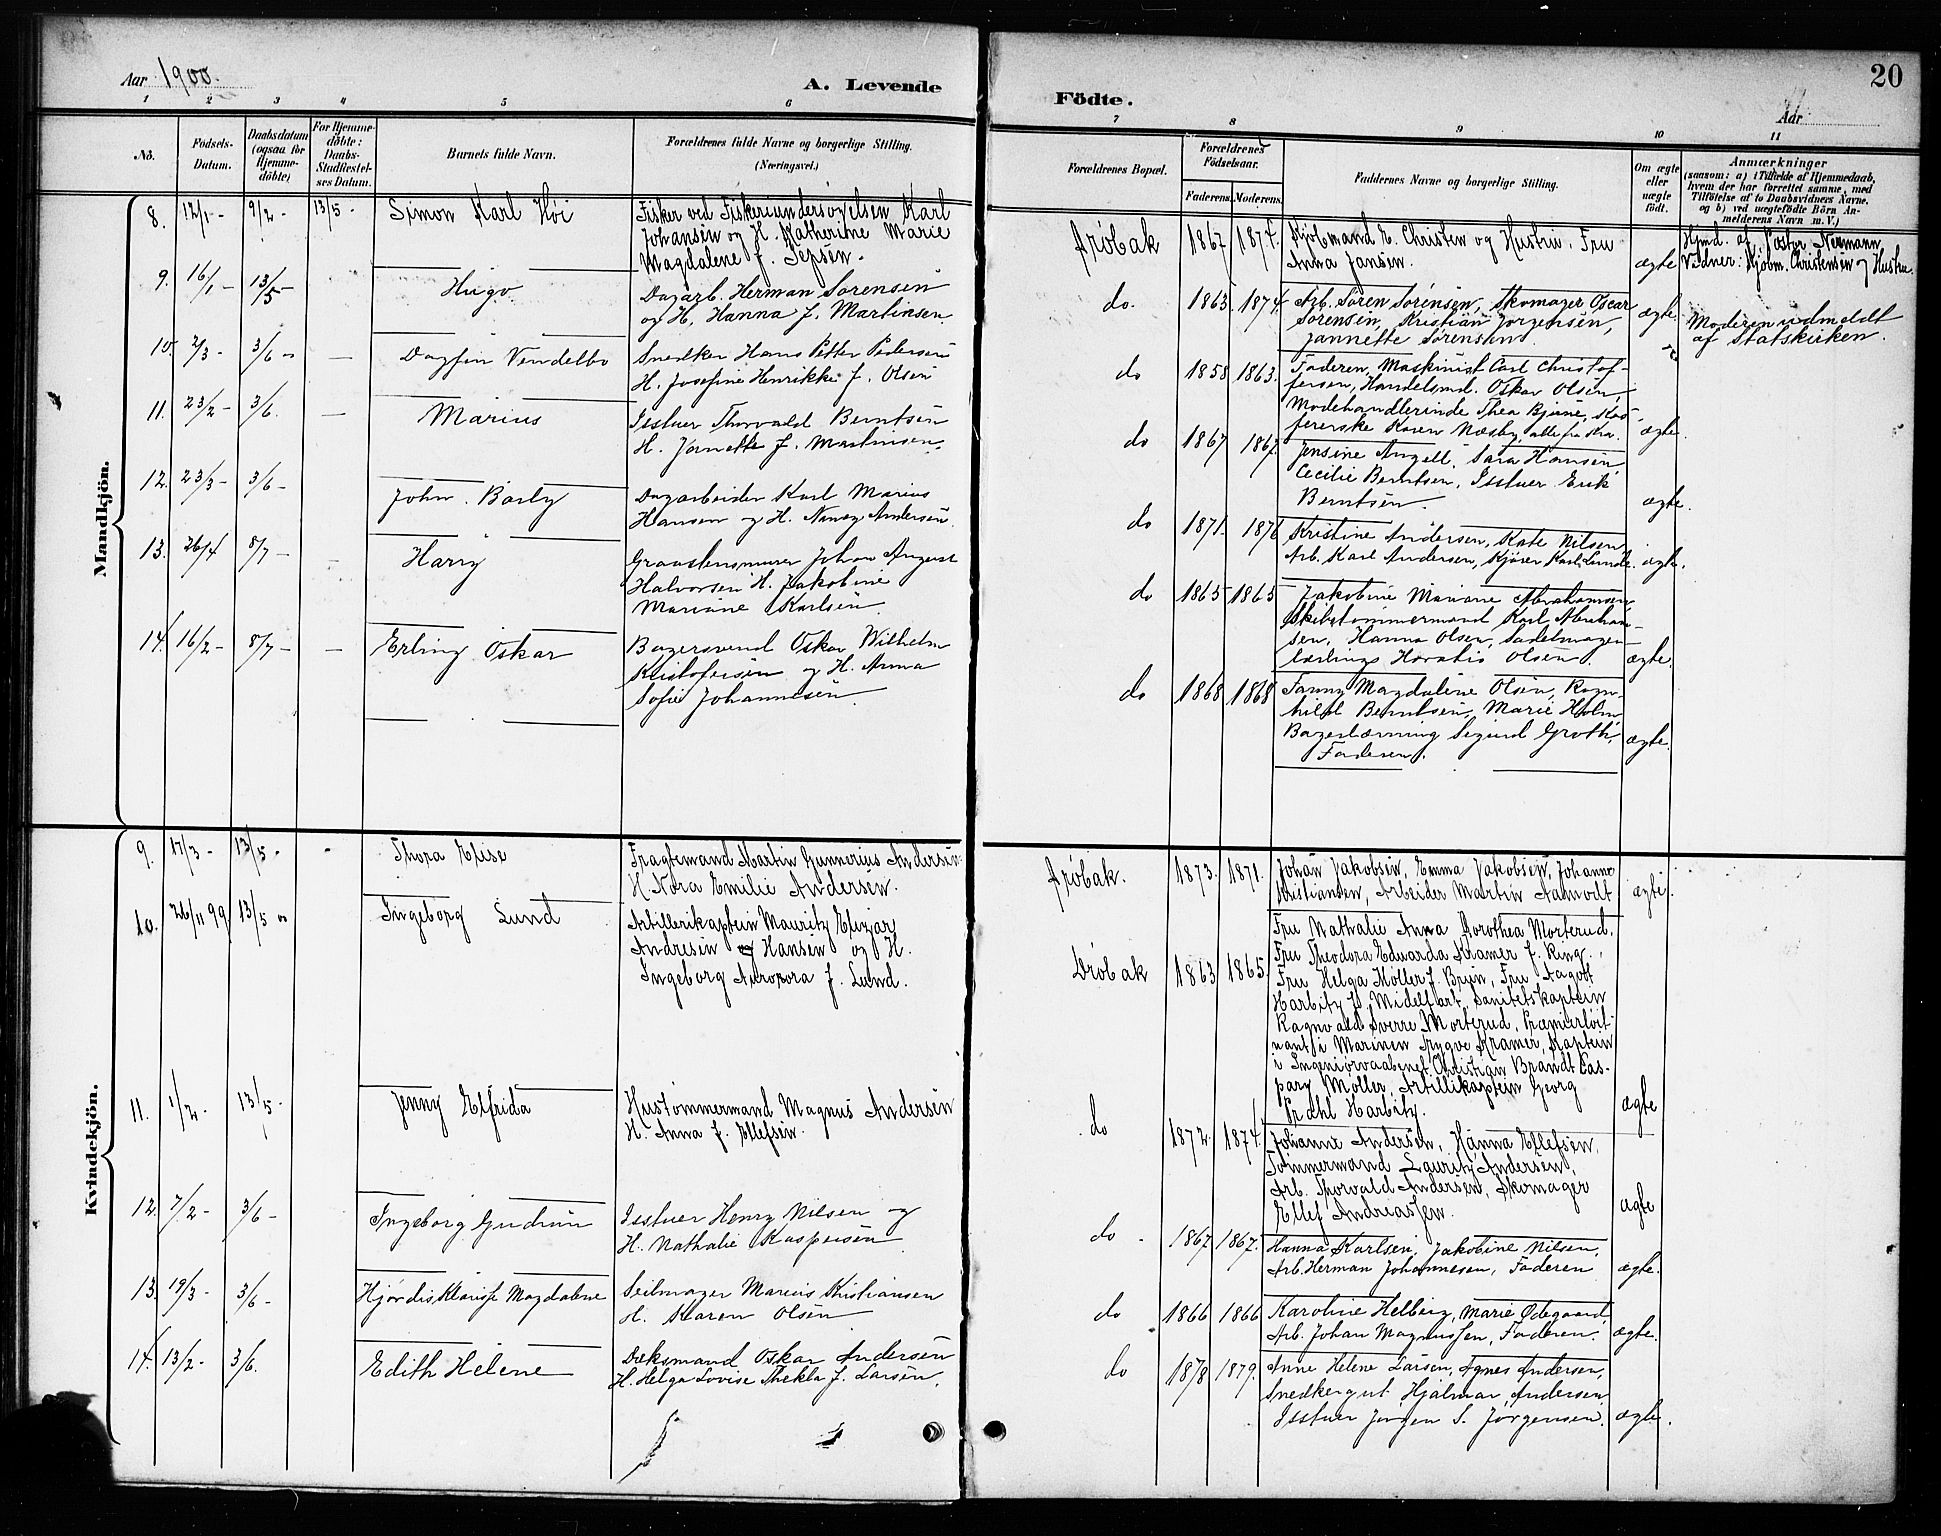 Aar 1900.
A. Levende
Födte.
20
Aar
1 2 3 4 5 6 7 8 9 10 11
No.
Fødsels-Datum.
Daabsdatum (ogsaa for Hjemme-döbte)
For Hjemme-döbte: Daabs-Stadfæstelses Datum.
Barnets fulde Navn.
Forældrenes fulde Navne og borgerlige Stilling. (Næringsvei.)
Forældrenes Bopæl.
Forældrenes Födselsaar.
Faderens. Moderens.
Faddernes Navne og borgerlige Stilling.
Om ægte eller uægte födt.
Anmærkninger
(saasom: a) i Tilfælde af Hjemmedaab,
hvem der har forrettet samme, med
Tilföielse af to Daabsvidners Navne.
og b) ved uægtefödte Börn An-
melderens Navn m. V.)
Mandkjön.
8. 12/1 - 9/2 - 13/5 - Simon Karl Høi
Fisker ved Fiskeriundersøgelsen Karl
Johansen og H. Katherine Marie
Magdalene f. Jepsen.
Drøbak 1867 1874.
Kjøbmand E. Christen og Hustru, Fru
Anna Jansen.
ægte
Hjmd. af Pastor Neumann
Vidner: Kjøbm. Christensen og Hustru.
9. 16/1 - 13/5 - Hugo.
Dagarb. Herman Sørensen
og H. Hanna f. Martinsen.
do. 1863 1874.
Arb. Søren Sørensen, Skomager Oscar
Sørensen, Kristian Jørgensen,
Jannette Sørensen.
ægte.
Moderen udmeldt
af Statskirken.
10. 2/3 - 3/6 - Dagfin Vendelbo
Snedker Hans Petter Pedersen
H. Josefine Henrikke f. Olsen
do 1858 1863.
Faderen, Maskinist Carl Christof-
fersen, Handelsmd. Oskar Olsen,
Modehandlerinde Thea Bjune, Kas-
sererske Karen Næsby, alle fra Kra.
ægte.
11. 23/2 - 3/6. - Marius
Isstuer Thorvald Berntsen
H. Jannette f. Martinsen.
do 1867 1867.
Jensine Angell, Sara Hansen
Cecilie Berntsen, Isstuer Erik
Berntsen.
ægte.
12. 23/3 - 3/6 - John Barly
Dagarbeider Karl Marius
Hansen og H. Nancy Andersen.
do 1871. 1876
Kristine Andersen, Kate Nilsen
Arb. Karl Andersen, Kjører Karl Lunde.
ægte.
13. 26/4 8/7 - Harry
Graastensmurer Johan August
Halvorsen H. Jakobine
Mariane Karlsen.
do 1865 1865
Jakobine Mariane Abrahamsen,
Skibstømmermand Karl Abraham-
sen, Hanna Olsen, Sadelmager-
lærling Horatio Olsen.
ægte.
14. 16/2 - 8/7 - Erling Oskar
Bagersvend Oskar Wilhelm
Kristofersen og H. Anna
Sofie Johannesen
do 1868 1868
Fanny Magdalene Olsen, Ragn-
hild Berntsen, Marie Holm,
Bagerlærning Sigurd Groth,
Faderen.
ægte.
Kvindekjön.
9. 17/3 - 13/5 - Thora Elise
Fragtemand Martin Gunnerius Andersen
H. Nora Emilie Andersen.
Drøbak. 1873. 1871.
Johan Jakobsen, Emma Jakobsen, Johanne
Kristiansen, Arbeider Martin Aamodt
ægte.
10. 26/11 99 13/5 Ingeborg Lund
Artillerikaptein Mauritz Elizjar
Andresen Hansen og H.
Ingeborg Aurorora f. Lund.
Drøbak 1863 1865.
Fru Nathalie Anna Dorothea Morterud.
Fru Theodora Edwarda Kramer f. Ring.
Fru Helga Møller f. Brun, Fru Aagot
Harbitz f. Midelfart, Sanitetskaptein
Ragnvald Sverre Morterud, Præmierløit-
nant i Marinen Trygve Kramer, Kaptein
i Ingeniørvaabenet Christian Brandt Cas-
pary Møller, Artillikaptein Georg
Prahl Harbitz.
ægte
11. 1/2 - 13/5 - Jenny Elfrida
Hustømmermand Magnus Andersen
H. Anna f. Ellefsen.
do 1872. 1874.
Johanne Andersen, Hanna Ellefsen,
Tømmermand Lauritz Andersen,
Arb. Thorvald Andersen, Skomager
Ellef Andreassen.
ægte
12. 7/2 - 3/6 - Ingeborg Gudrun
Isstuer Henry Nilsen og
H. Nathalie Kaspersen
do 1867 1867.
Hanna Karlsen, Jakobine Nilsen,
Arb. Herman Johannesen, Faderen
ægte.
13. 19/3 - 3/6 - Hjørdis Klarisse Magdalene
Seilmager Marius Kristiansen
H. Karen Olsen
do 1866 1866
Karoline Helberg, Marie Ødegaard,
Arb. Johan Magnussen, Faderen.
ægte.
14. 13/2 - 3/6. Edith Helene
Dæksmand Oskar Andersen
H. Helga Lovise Thekla f. Larsen.
do 1878 1879.
Anne Helene Larsen, Agnes Andersen,
Snedkergut Hjalmar Andersen
Isstuer Jørgen S. Jørgensen.
ægte.